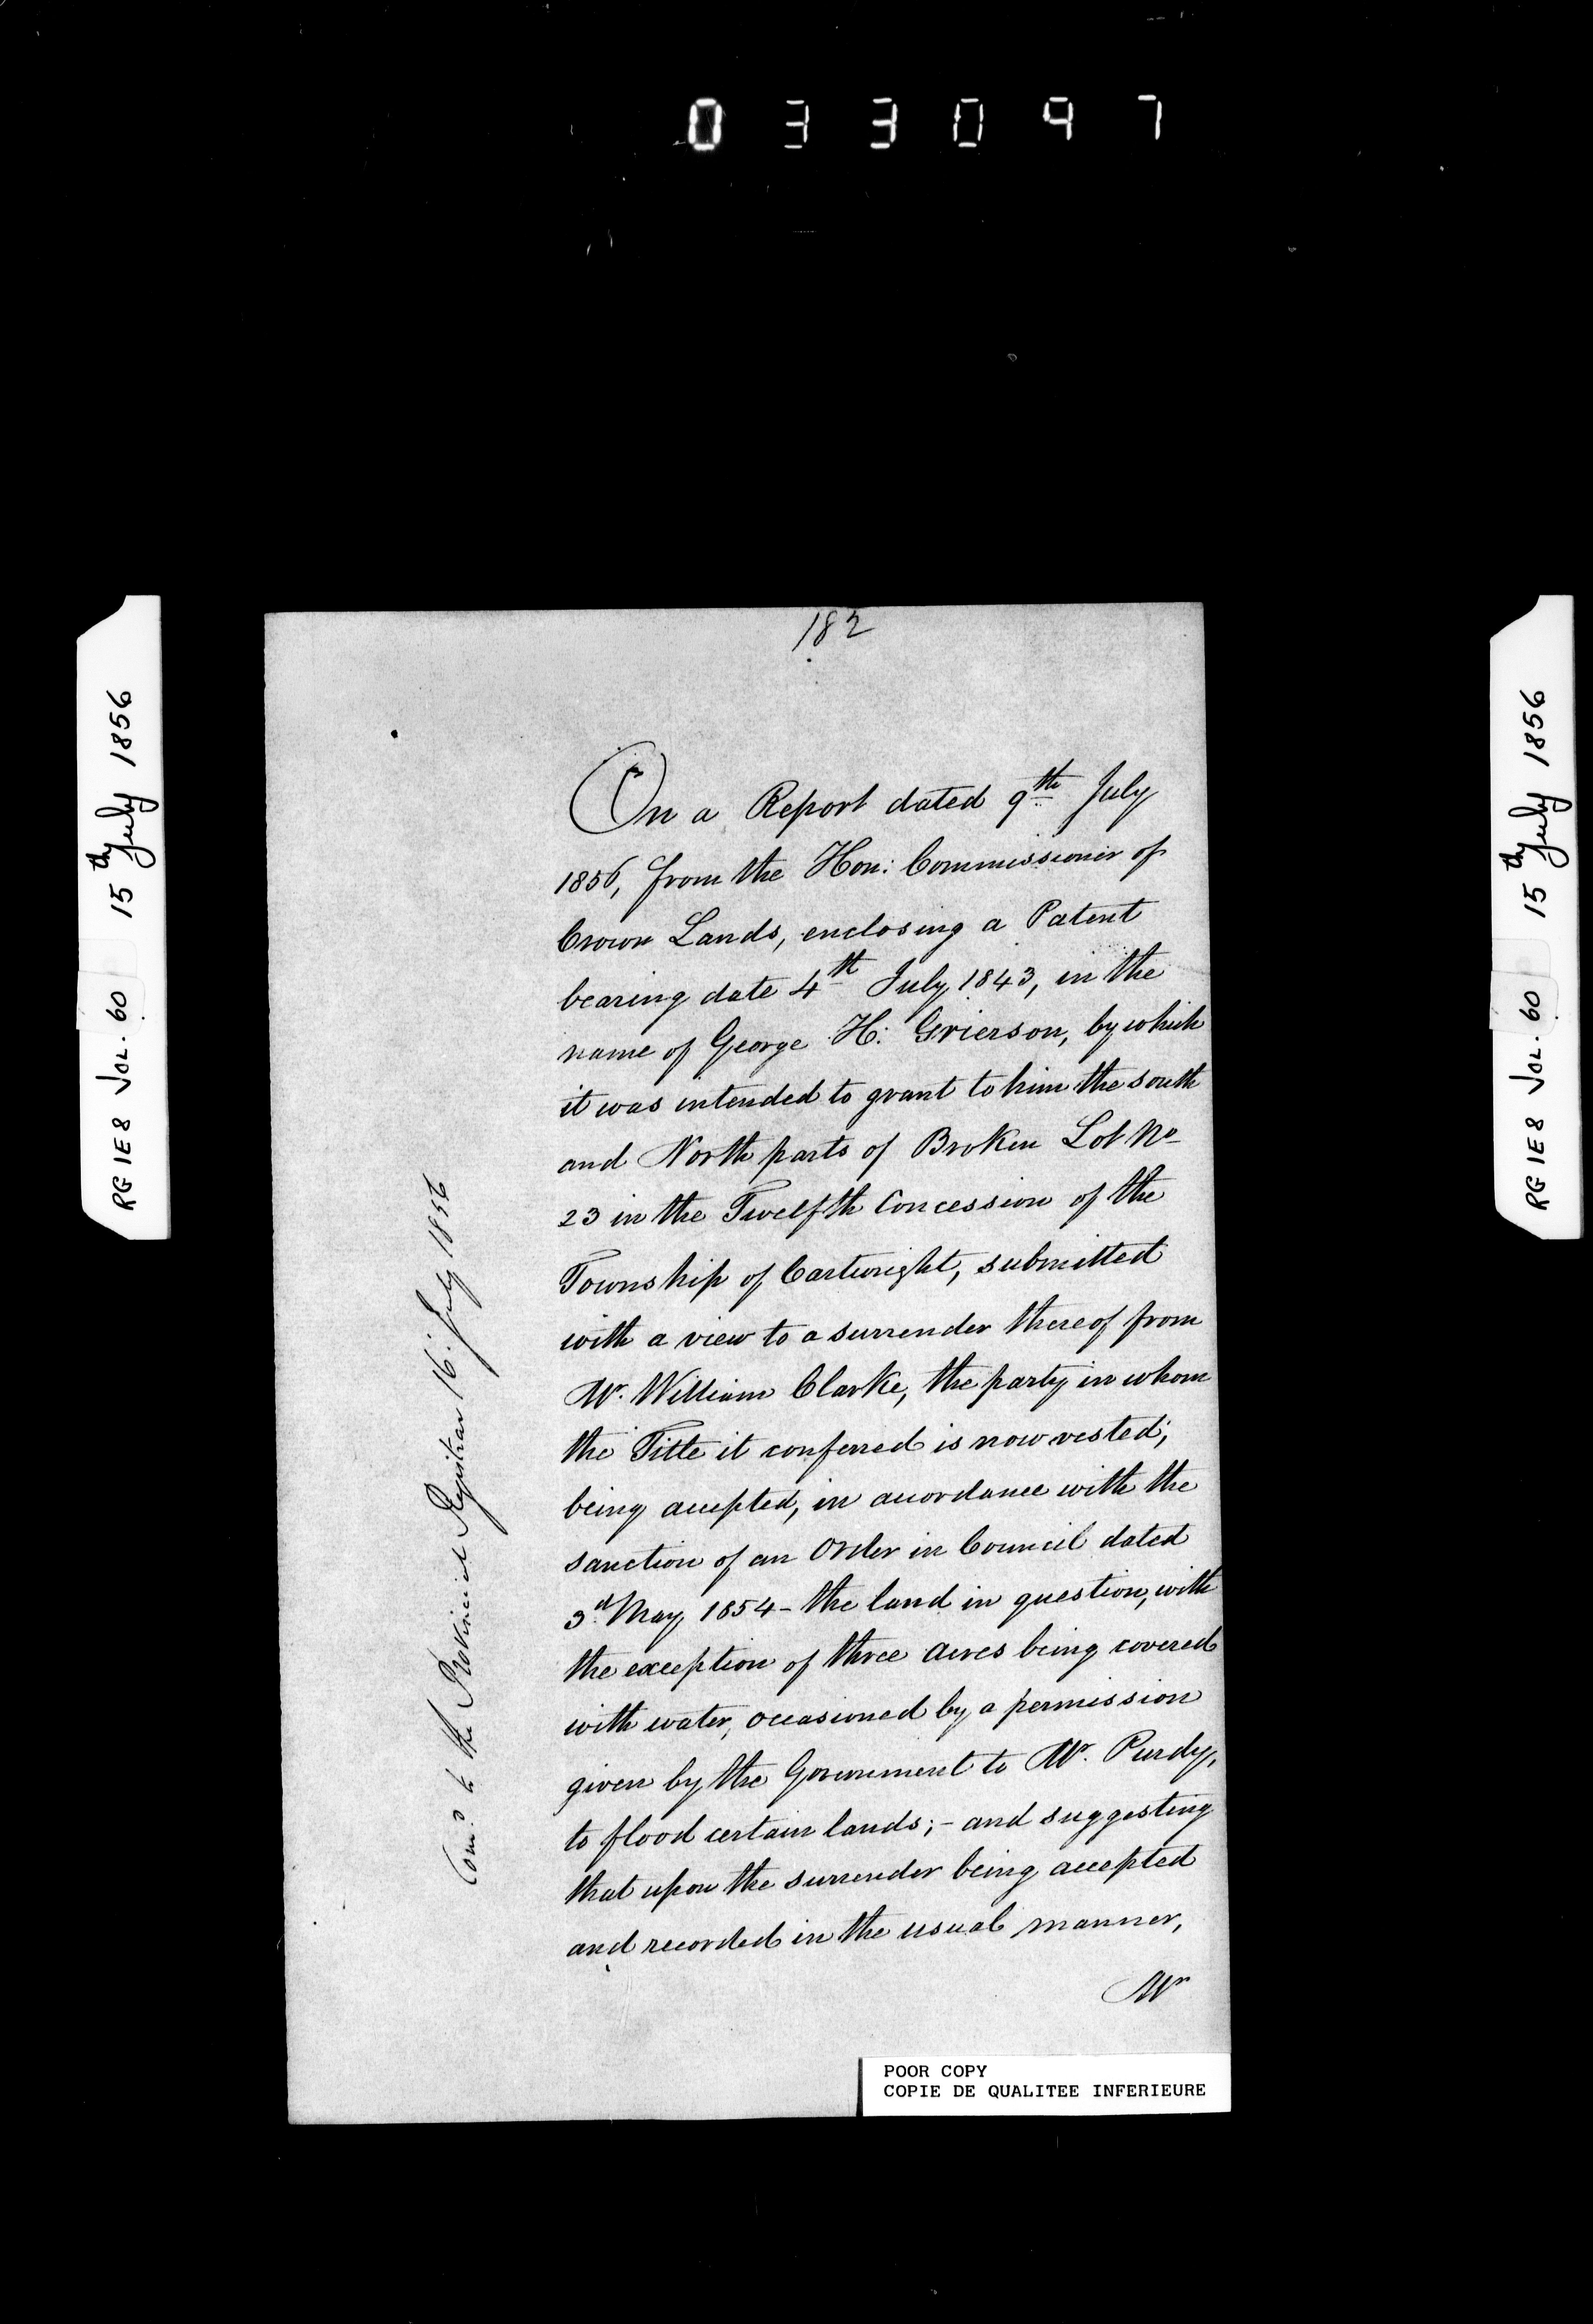 033097
182
On a Report dated 9th July
1856, from the Hon: Commissioner of
Crown Lands, enclosing a Patent
bearing date 4th July 1843, in the
name of George H: Grierson, by which
it was intended to grant to him the south
and North parts of Broken Lot No
23 in the Twelfth Concession of the
Township of Cartwright, submitted
with a view to a surrender thereof from
Mr. William Clarke, the party in whom
the Title it conferred is now vested;
being accepted, in accordance with the
sanction of an Order in Council dated
3d May 1854 - the land in question, with
the exception of three acres being covered
with water, occasioned by a permission
given by the Government to Mr. Purdy,
to flood certain lands; - and suggesting
that upon the surrender being accepted
and recorded in the usual manner,
Mr
Com.d to the Provincial Registrar 16. July 1856
RG 1E8 VOL. 60 15th July 1856
RG 1E8 VOL. 60 15th July 1856
POOR COPY
COPIE DE QUALITEE INFERIEURE